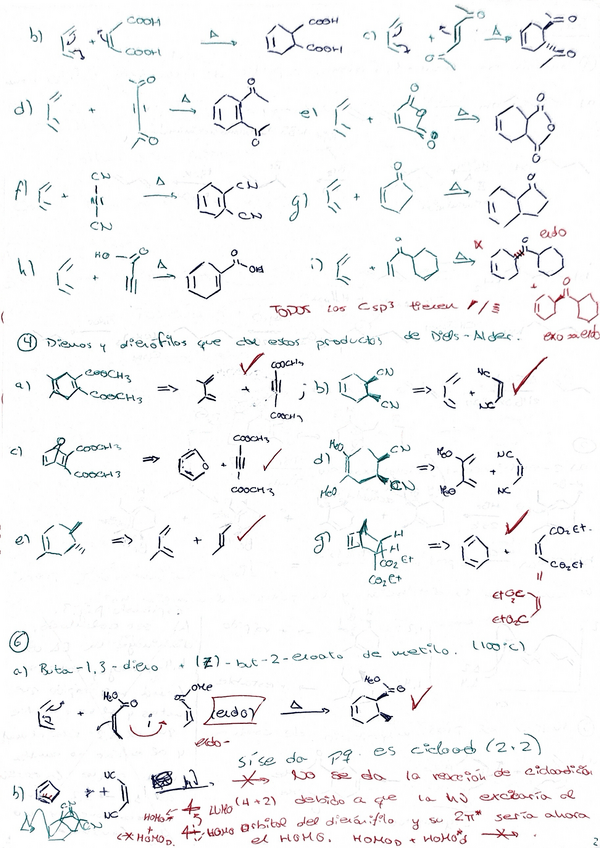 b) + COOH COOH Δ COOH COOH c) + O O Δ O O
d) + O O Δ O O e) + O O O Δ O O O
f) + CN CN Δ CN CN g) + O Δ O
h) + HO O Δ O OH i) + O Δ x O endo
+ O
TODOS los Csp3 tienen exo
④ Dienos y dienófilos que dan estos productos de Diels-Alder.
a) COOCH3 COOCH3 => + COOCH3 COOCH3 ✓ ; b) CN CN => + NC NC ✓
c) O COOCH3 COOCH3 => O + COOCH3 COOCH3 ✓ d) MeO MeO CN CN => MeO MeO + NC NC
e) => + ✓ g) H H CO2Et CO2Et => + CO2Et. CO2Et ✓
=
EtO2C
EtO2C
⑥
a) Buta-1,3-dieno + (Z)-but-2-enoato de metilo. (100°C)
+ MeO O ; O OMe endo Δ MeO O ✓
endo-
sí se da pq. es cicload (2+2)
b) + NC NC hν No se da la reacción de cicloadición
CN CN HOMO* LUMO (4+2) debido a que la hν excitaría el
+ HOMO orbital del dienófilo y su 2π* sería ahora
HOMO D. el HOMO. HOMO D + HOMO d*
2